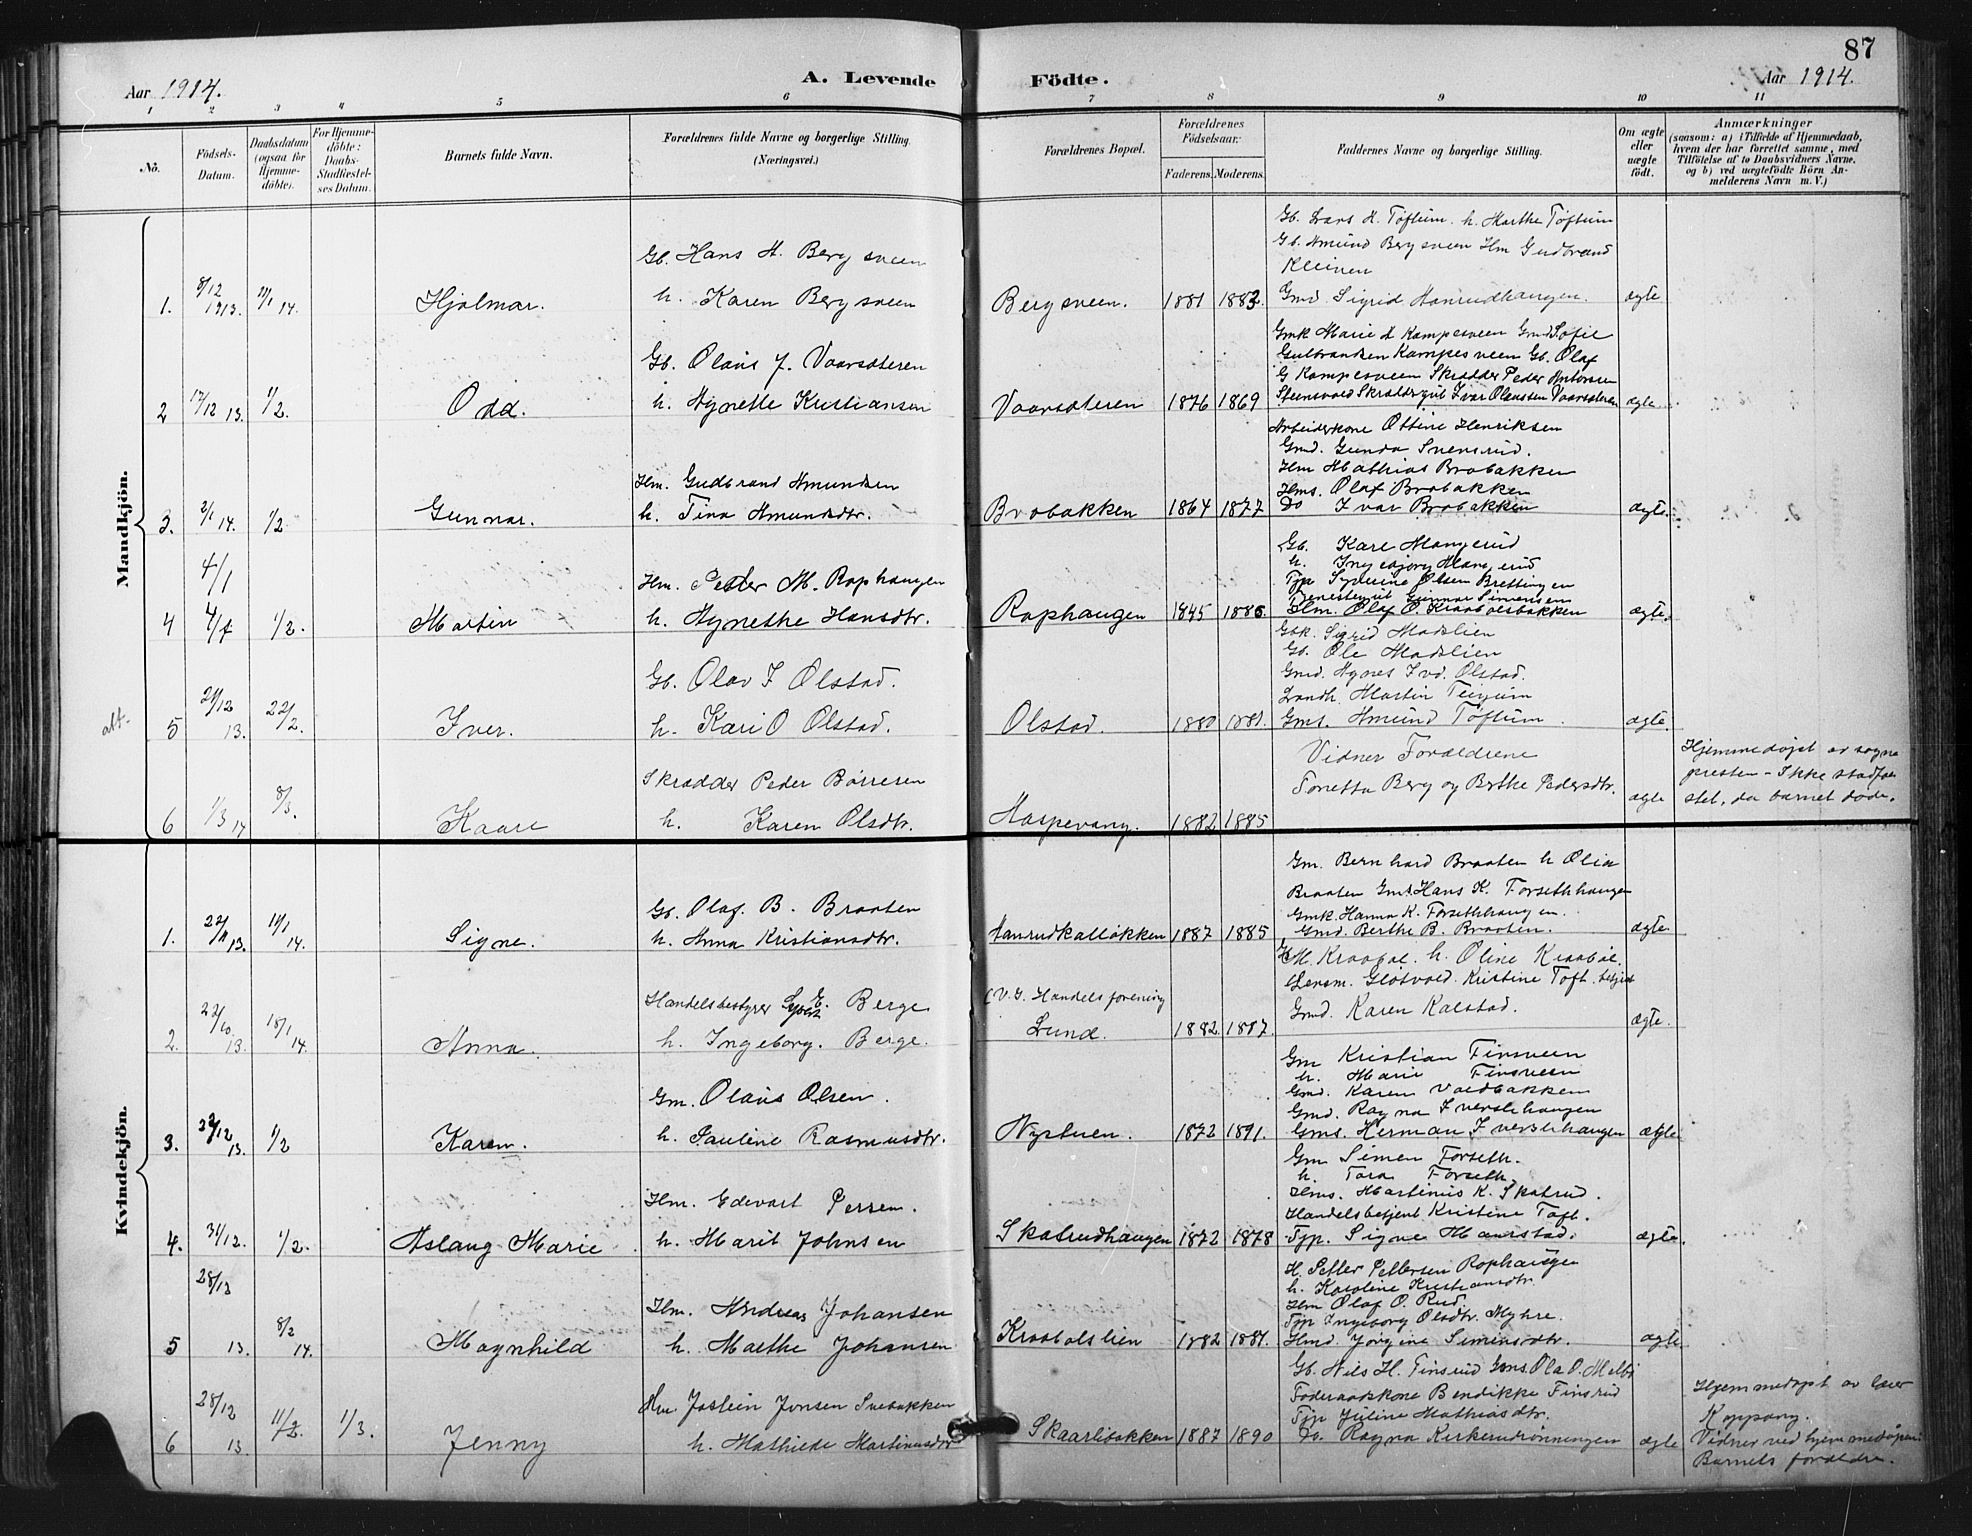 87
Aar 1914.
A. Levende
Födte.
Aar 1914.
1 2 3 4 5 6 7 8 9 10 11
No.
Födsels-
Datum.
Daabsdatum
(ogsaa for
Hjemme-
döbte).
For Hjemme-
döbte:
Daabs-
Stadfæstel-
ses Datum.
Barnets fulde Navn.
Forældrenes fulde Navne og borgerlige Stilling.
(Næringsvei.)
Forældrenes Bopæl.
Forældrenes
Födselsaar.
Faderens. Moderens.
Faddernes Navne og borgerlige Stilling.
Om ægte
eller
uægte
födt.
Anmærkninger
(saasom: a) i Tilfælde af Hjemmedaab,
hvem der har forrettet samme, med
Tilföielse af to Daabsvidners Navne,
og b) ved uægtefödte Börn An-
melderens Navn m. V.)
Mandkjön.
Gb. Lars H. Toftum. h. Marthe Toftum
Gb. Amund Bergsveen Hm Gudbrand
Kleiven
Gb. Hans A. Bergsveen
1. 8/12 1913. 11/1 14. Hjalmar. h. Karen Bergsveen Bergsveen. 1881 1883. Gmd. Sigrid Aanrudhaugen. ægte
Gmk Marie H Kampesveen Gmd Sofie
Gulbrandsen Kampesveen Gb. Olaf
G Kampesveen Skrædder Peder Antonsen
Gb. Olaus J. Vaarsæteren
2 17/12 13. 1/2. Odd. h. Agnette Kristiansen Vaarsæteren 1876 1869 Steensvold Skræddergut Ivar Olaussen Vaarsæteren ægte
Arbeiderkone Ottine Henriksen
Gmd. Gunda Svensrud.
Hm Mathias Brobakken
Hms. Olaf Brobakken
Hm. Gudbrand Amundsen
3. 2/1 14. 1/2 Gunnar. h. Tina Amundsdtr. Brobakken 1864 1877 Do Ivar Brobakken ægte.
Gb. Kare Mangerud
h. Ingebjørg Mangerud
Tjp Syverine Olsen Brettingen
Tjenestegut Gunnar Simensen
4/1
Hm. Peder M. Rophaugen
4 1/2. Martin h. Agnethe Hansdtr. Rophaugen 1845 1886 Hm. Olaf O. Kraabølsbakken ægte.
Gbk. Sigrid Madslien
Gb. Ole Madslien
Gmd. Agnes Ivd. Olstad.
Landh. Martin Teigum
Gb. Olav I Olstad.
alt.
5 29/12 13. 22/2. Iver. h. Kari O Olstad. Olstad. 1880 1881. Gms. Amund Toftum. ægte.
Vidner Forældrene
Tonetta Berg og Berthe Pedersdtr.
Hjemmedøpt av sogne
presten - Ikke stadfæ
stet, da barnet døde.
Skrædder Peder Børresen
6 1/3 14 8/3. Kaare h. Karen Olsdtr. Haspevang. 1882 1885 ægte
Kvindekjön.
Gm. Bernhard Braaten h Olia
Braaten Gms Hans K. Forsethhaugen
Gmk. Hanna K. Forsethhaugen.
Gb. Olaf. B. Braaten
1. 22/11 13. 11/1 14. Signe. h. Anna Kristiansdtr. Aanrudkalløkken 1887 1885 Gmd. Berthe B. Braaten. ægte
M. Kraabøl. h. Oline Kraabøl.
Lensm. Gløtvold. Kristine Toft. betjent
Gmd. Karen Kalstad.
(V. G. Handelsforening
Handelsbestyrer Sylvest E. Berge
2. 22/10 13. 18/1 14. Anna. h. Ingeborg. Berge. Lund. 1882 1887. ægte.
Gm Kristian Finsveen
h. Marie Finsveen
Gmd. Karen Voldbakken
Gmd. Ragna Iverslihaugen
Gm. Olaus Olsen.
3. 29/12 13. 1/2 Karen. h. Pauline Rasmusdtr. Nystuen. 1872 1891. Gms. Herman Iverslihaugen ægte
Gm Simen Forseth.
h. Tora Forseth.
Hms. Martinus K. Skatrud.
Handelsbetjent Kristine Toft.
Hm. Edevart Persen.
4. 31/12. 1/2. Aslaug Marie h. Marit Johnsen Skatrudhaugen 1872 1878 Tjp. Signe Maurstad. ægte.
H. Petter Pettersen Rophaugen
h. Karoline Kristiansdtr.
Hm Olaf O. Rud.
Tjp Ingeborg Olsdtr. Myhre.
Hm. Andreas Johansen
5 28/12 13. 8/2 14. Magnhild h. Marthe Johansen Kraabølslien 1882 1881. Hmd. Jørgine Simensdtr. ægte
Gb. Nils H. Finsrud Gms. Ola O. Melbø
Føderaadskone Bendikke Finsrud
Tjp Juline Mathiasdtr.
Hjemmedøpt av lærer
Koppang.
Vidner ved hjemmedåpen:
Barnets forældre.
Hm. Jostein Jonsen Svebakken
6 28/12 13. 11/2. 1/3. Jenny h. Mathilde Martinusdtr Skaarlibakken 1887 1890 Do. Ragna Kirkerudrønningen ægte